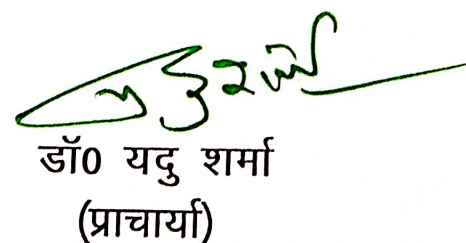 डॉ0 यदु शर्मा
(प्राचार्या)